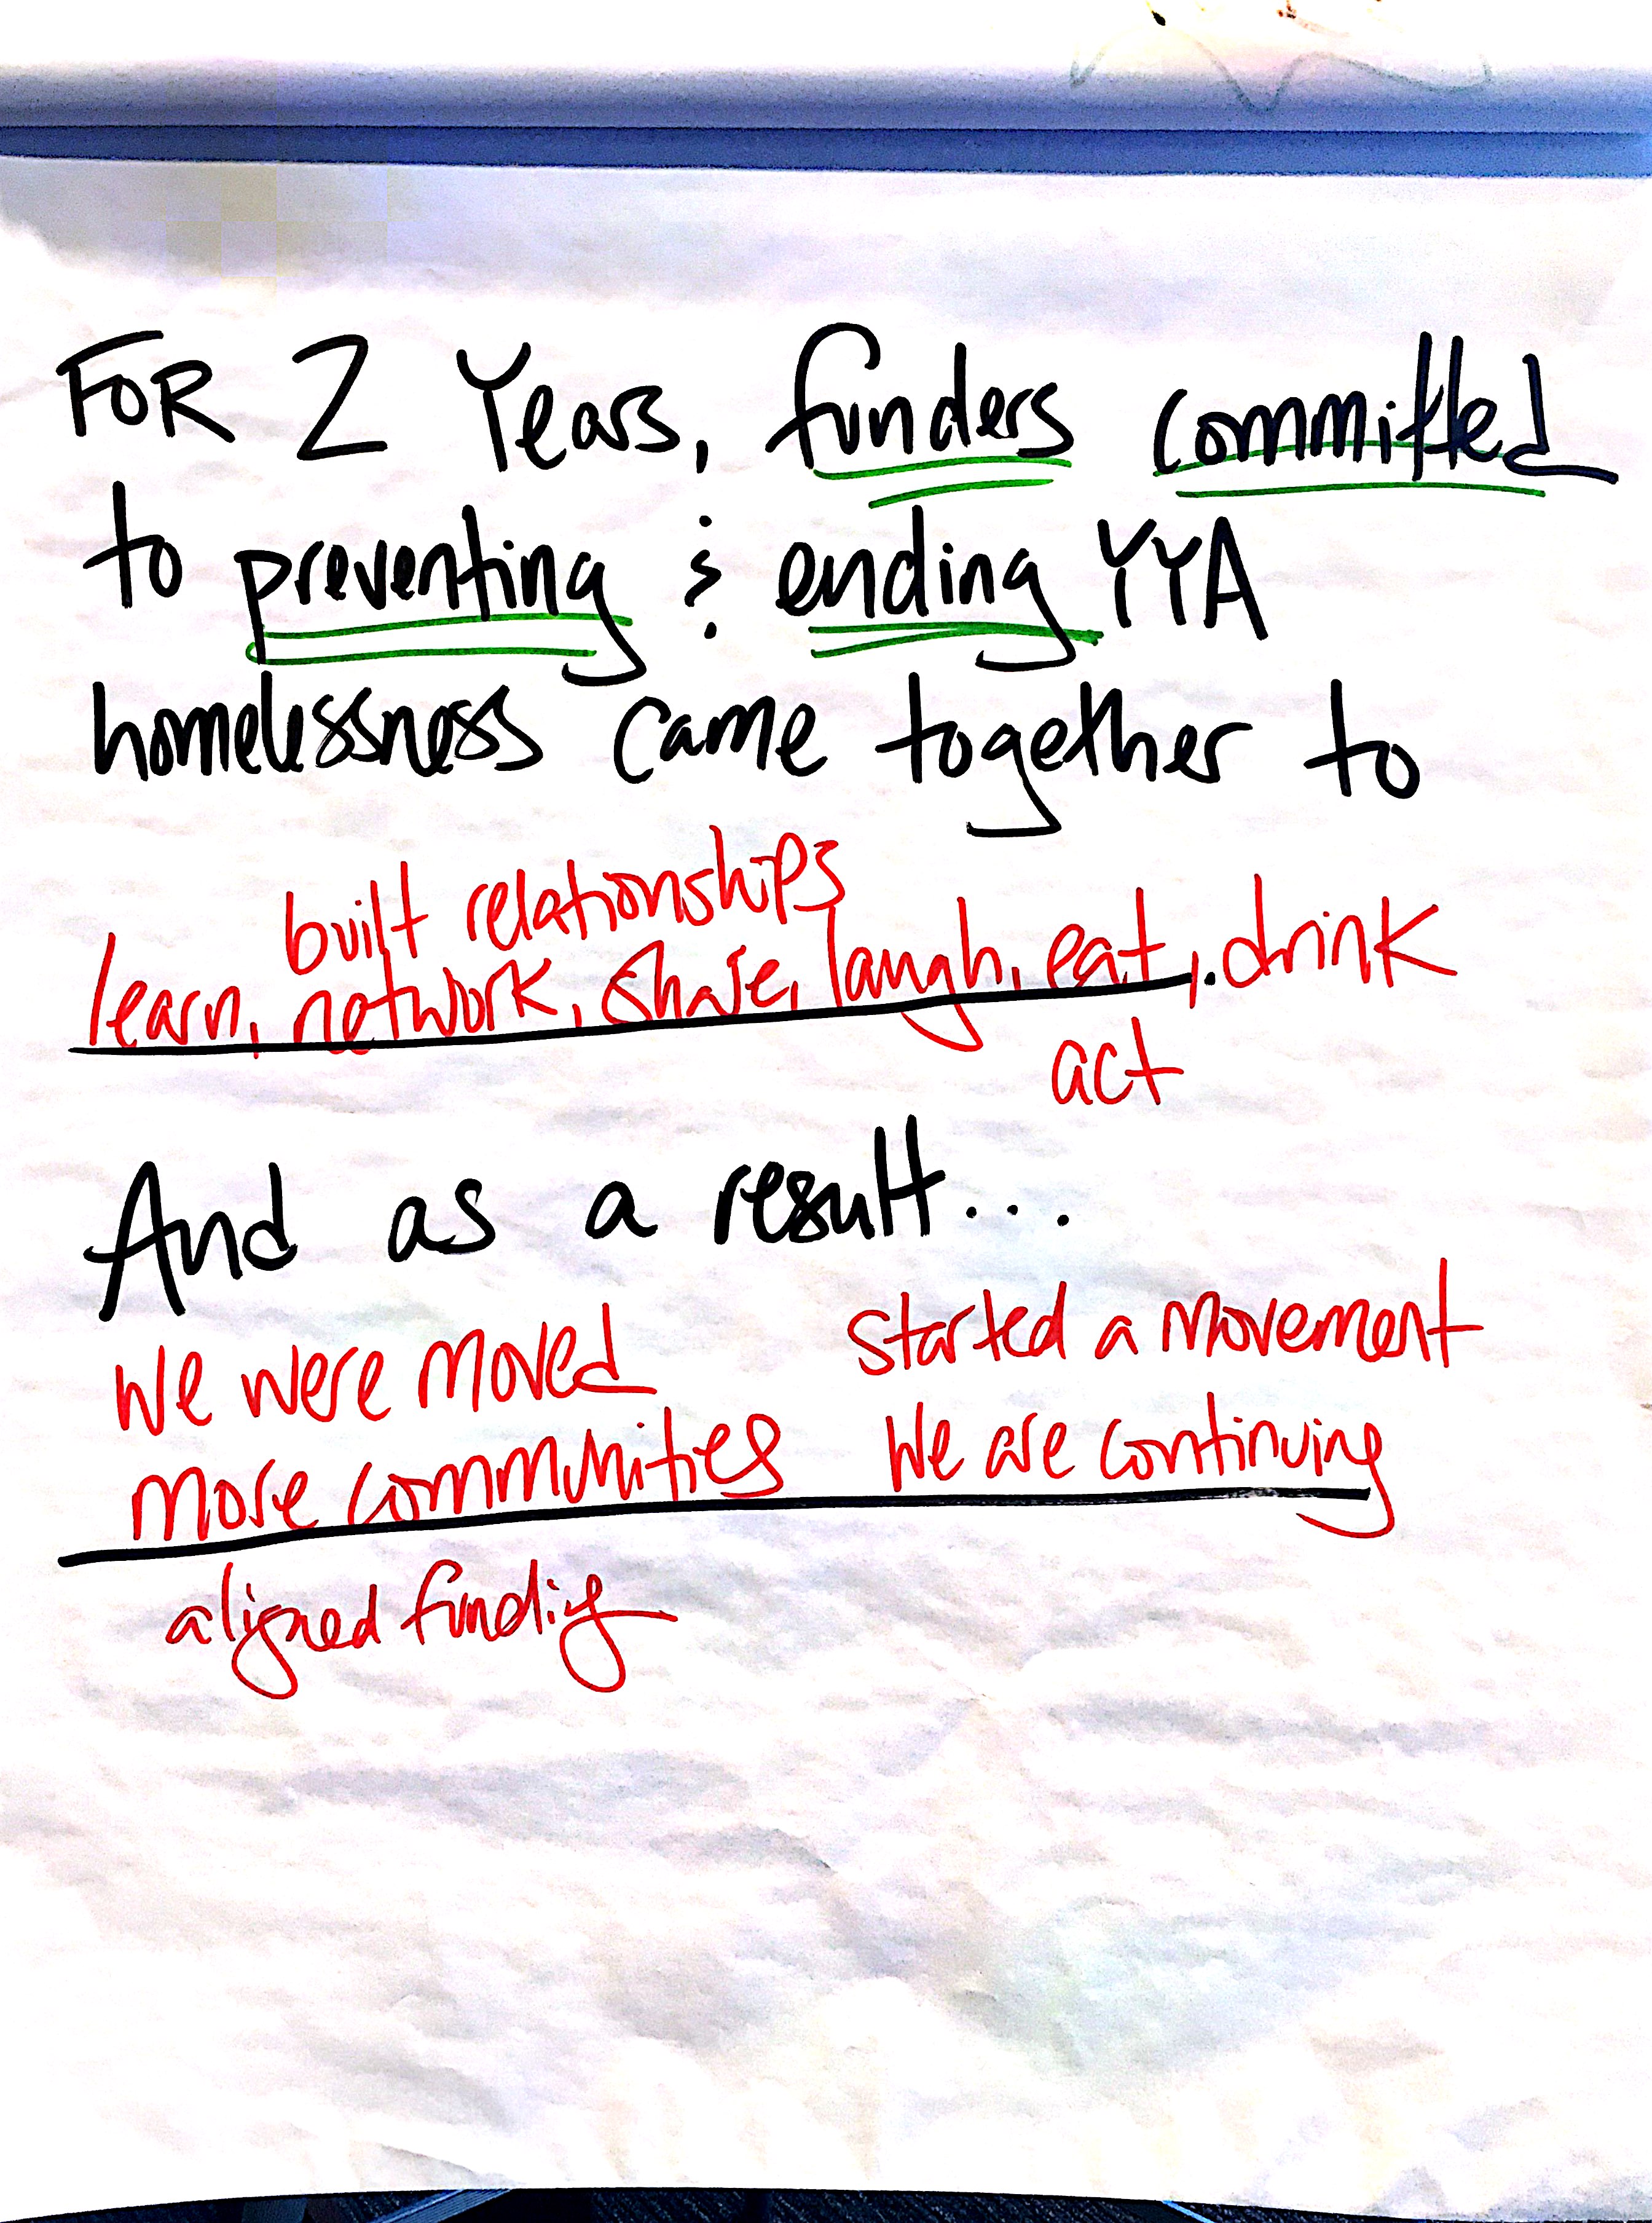 FOR 2 Years, funders committed
to preventing & ending YYA
homelessness came together to
built relationships
learn, network, share, laugh, eat, drink
act
And as a result...
we were moved started a movement
more communities We are continuing
aligned funding